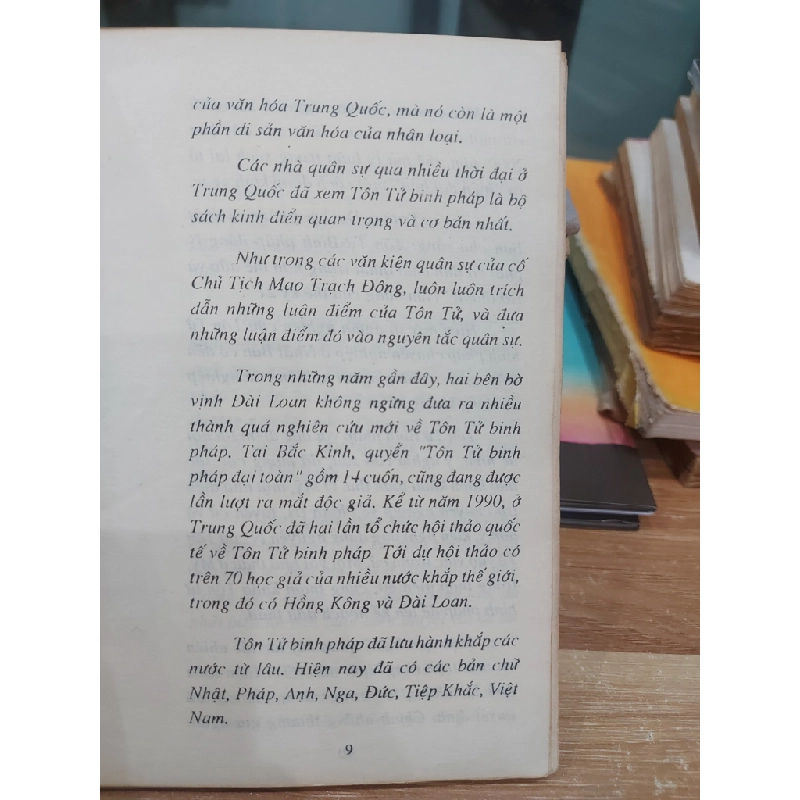 của văn hóa Trung Quốc, mà nó còn là một
phần di sản văn hóa của nhân loại.
Các nhà quân sự qua nhiều thời đại ở
Trung Quốc đã xem Tôn Tử binh pháp là bộ
sách kinh điển quan trọng và cơ bản nhất.
Như trong các văn kiện quân sự của cố
Chủ Tịch Mao Trạch Đông, luôn luôn trích
dẫn những luận điểm của Tôn Tử, và đưa
những luận điểm đó vào nguyên tắc quân sự.
Trong những năm gần đây, hai bên bờ
vịnh Đài Loan không ngừng đưa ra nhiều
thành quả nghiên cứu mới về Tôn Tử binh
pháp. Tai Bắc Kinh, quyển "Tôn Tử binh
pháp đại toàn" gồm 14 cuốn, cũng đang được
lần lượt ra mắt độc giả. Kể từ năm 1990, ở
Trung Quốc đã hai lần tổ chức hội thảo quốc
tế về Tôn Tử binh pháp. Tới dự hội thảo có
trên 70 học giả của nhiều nước khắp thế giới,
trong đó có Hồng Kông và Đài Loan.
Tôn Tử binh pháp đã lưu hành khắp các
nước từ lâu. Hiện nay đã có các bản chữ
Nhật, Pháp, Anh, Nga, Đức, Tiệp Khắc, Việt
Nam.
9